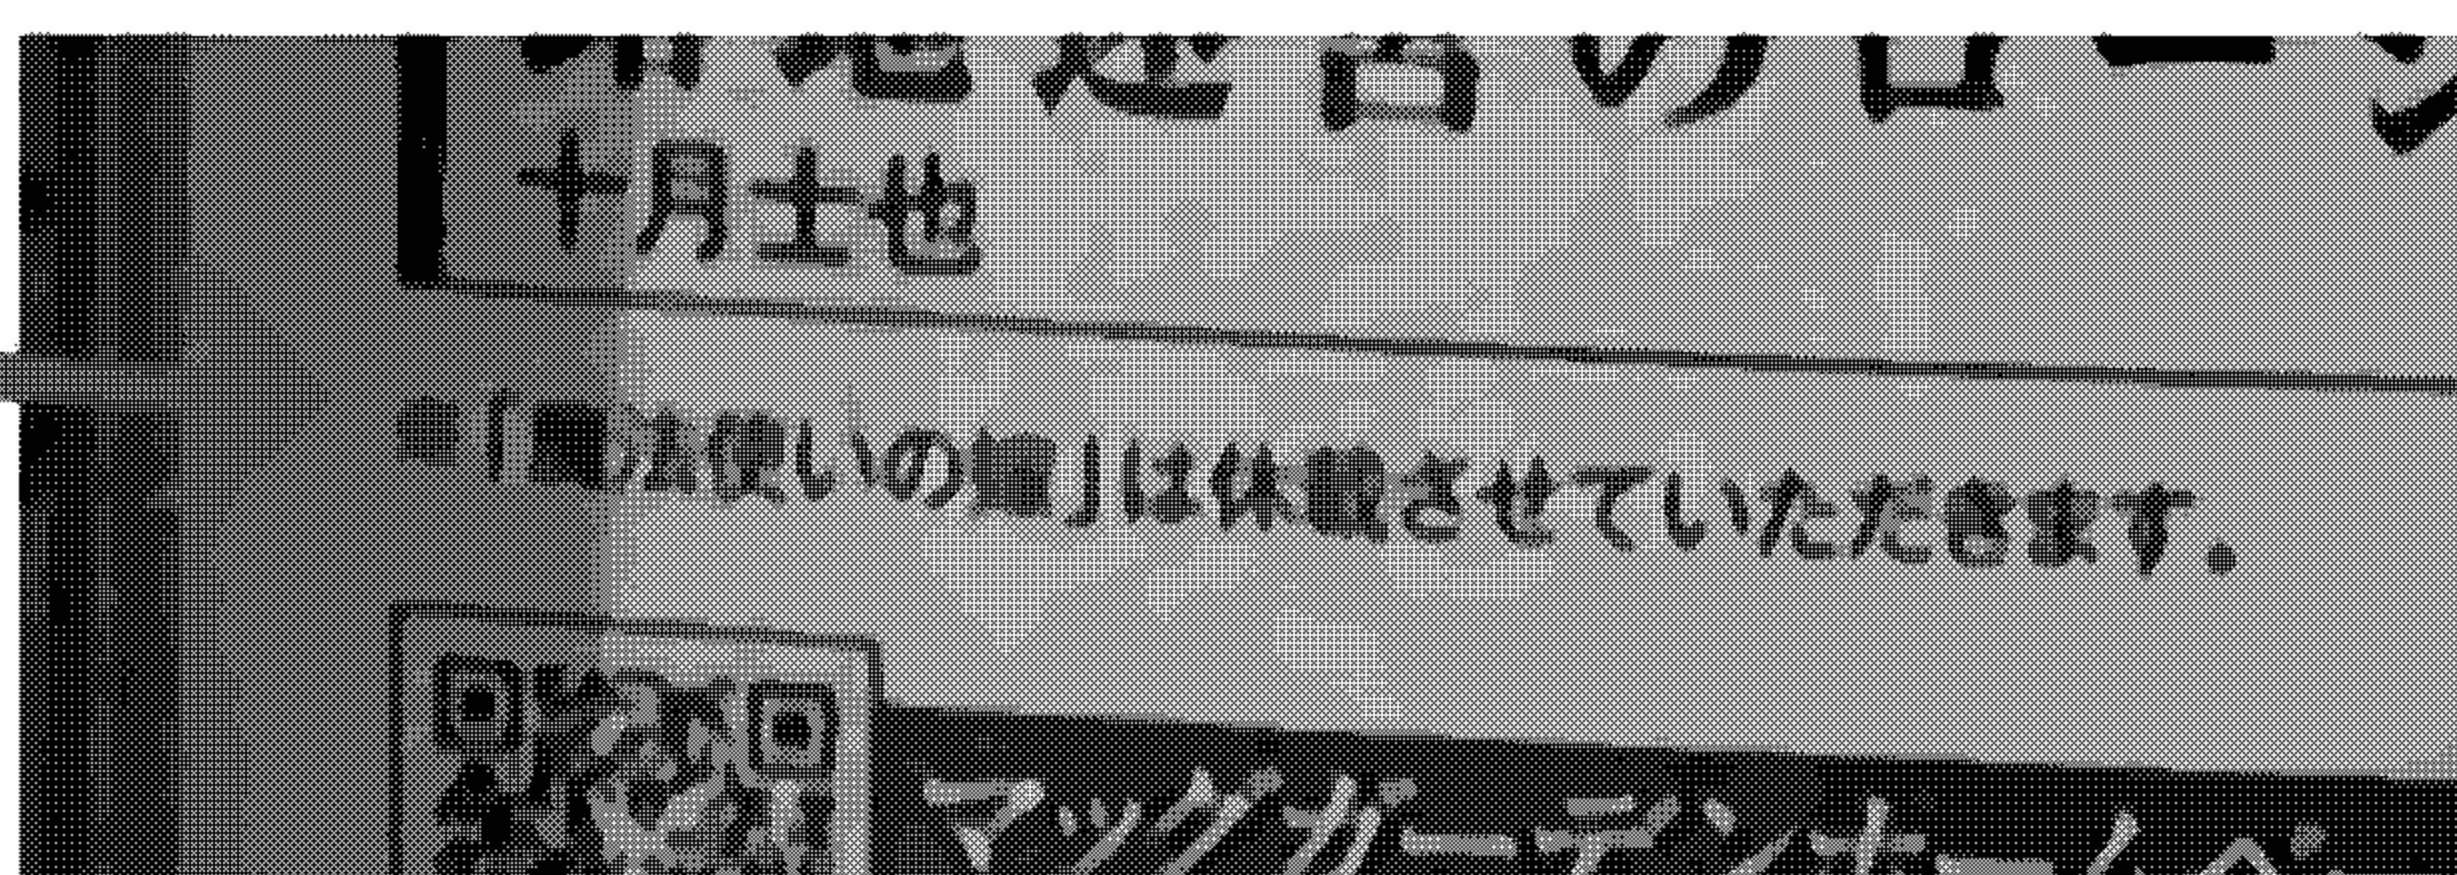 のロー
十月士也
■「魔法使いの嫁」は休載させていただきます。
マッグガーデンホームペ